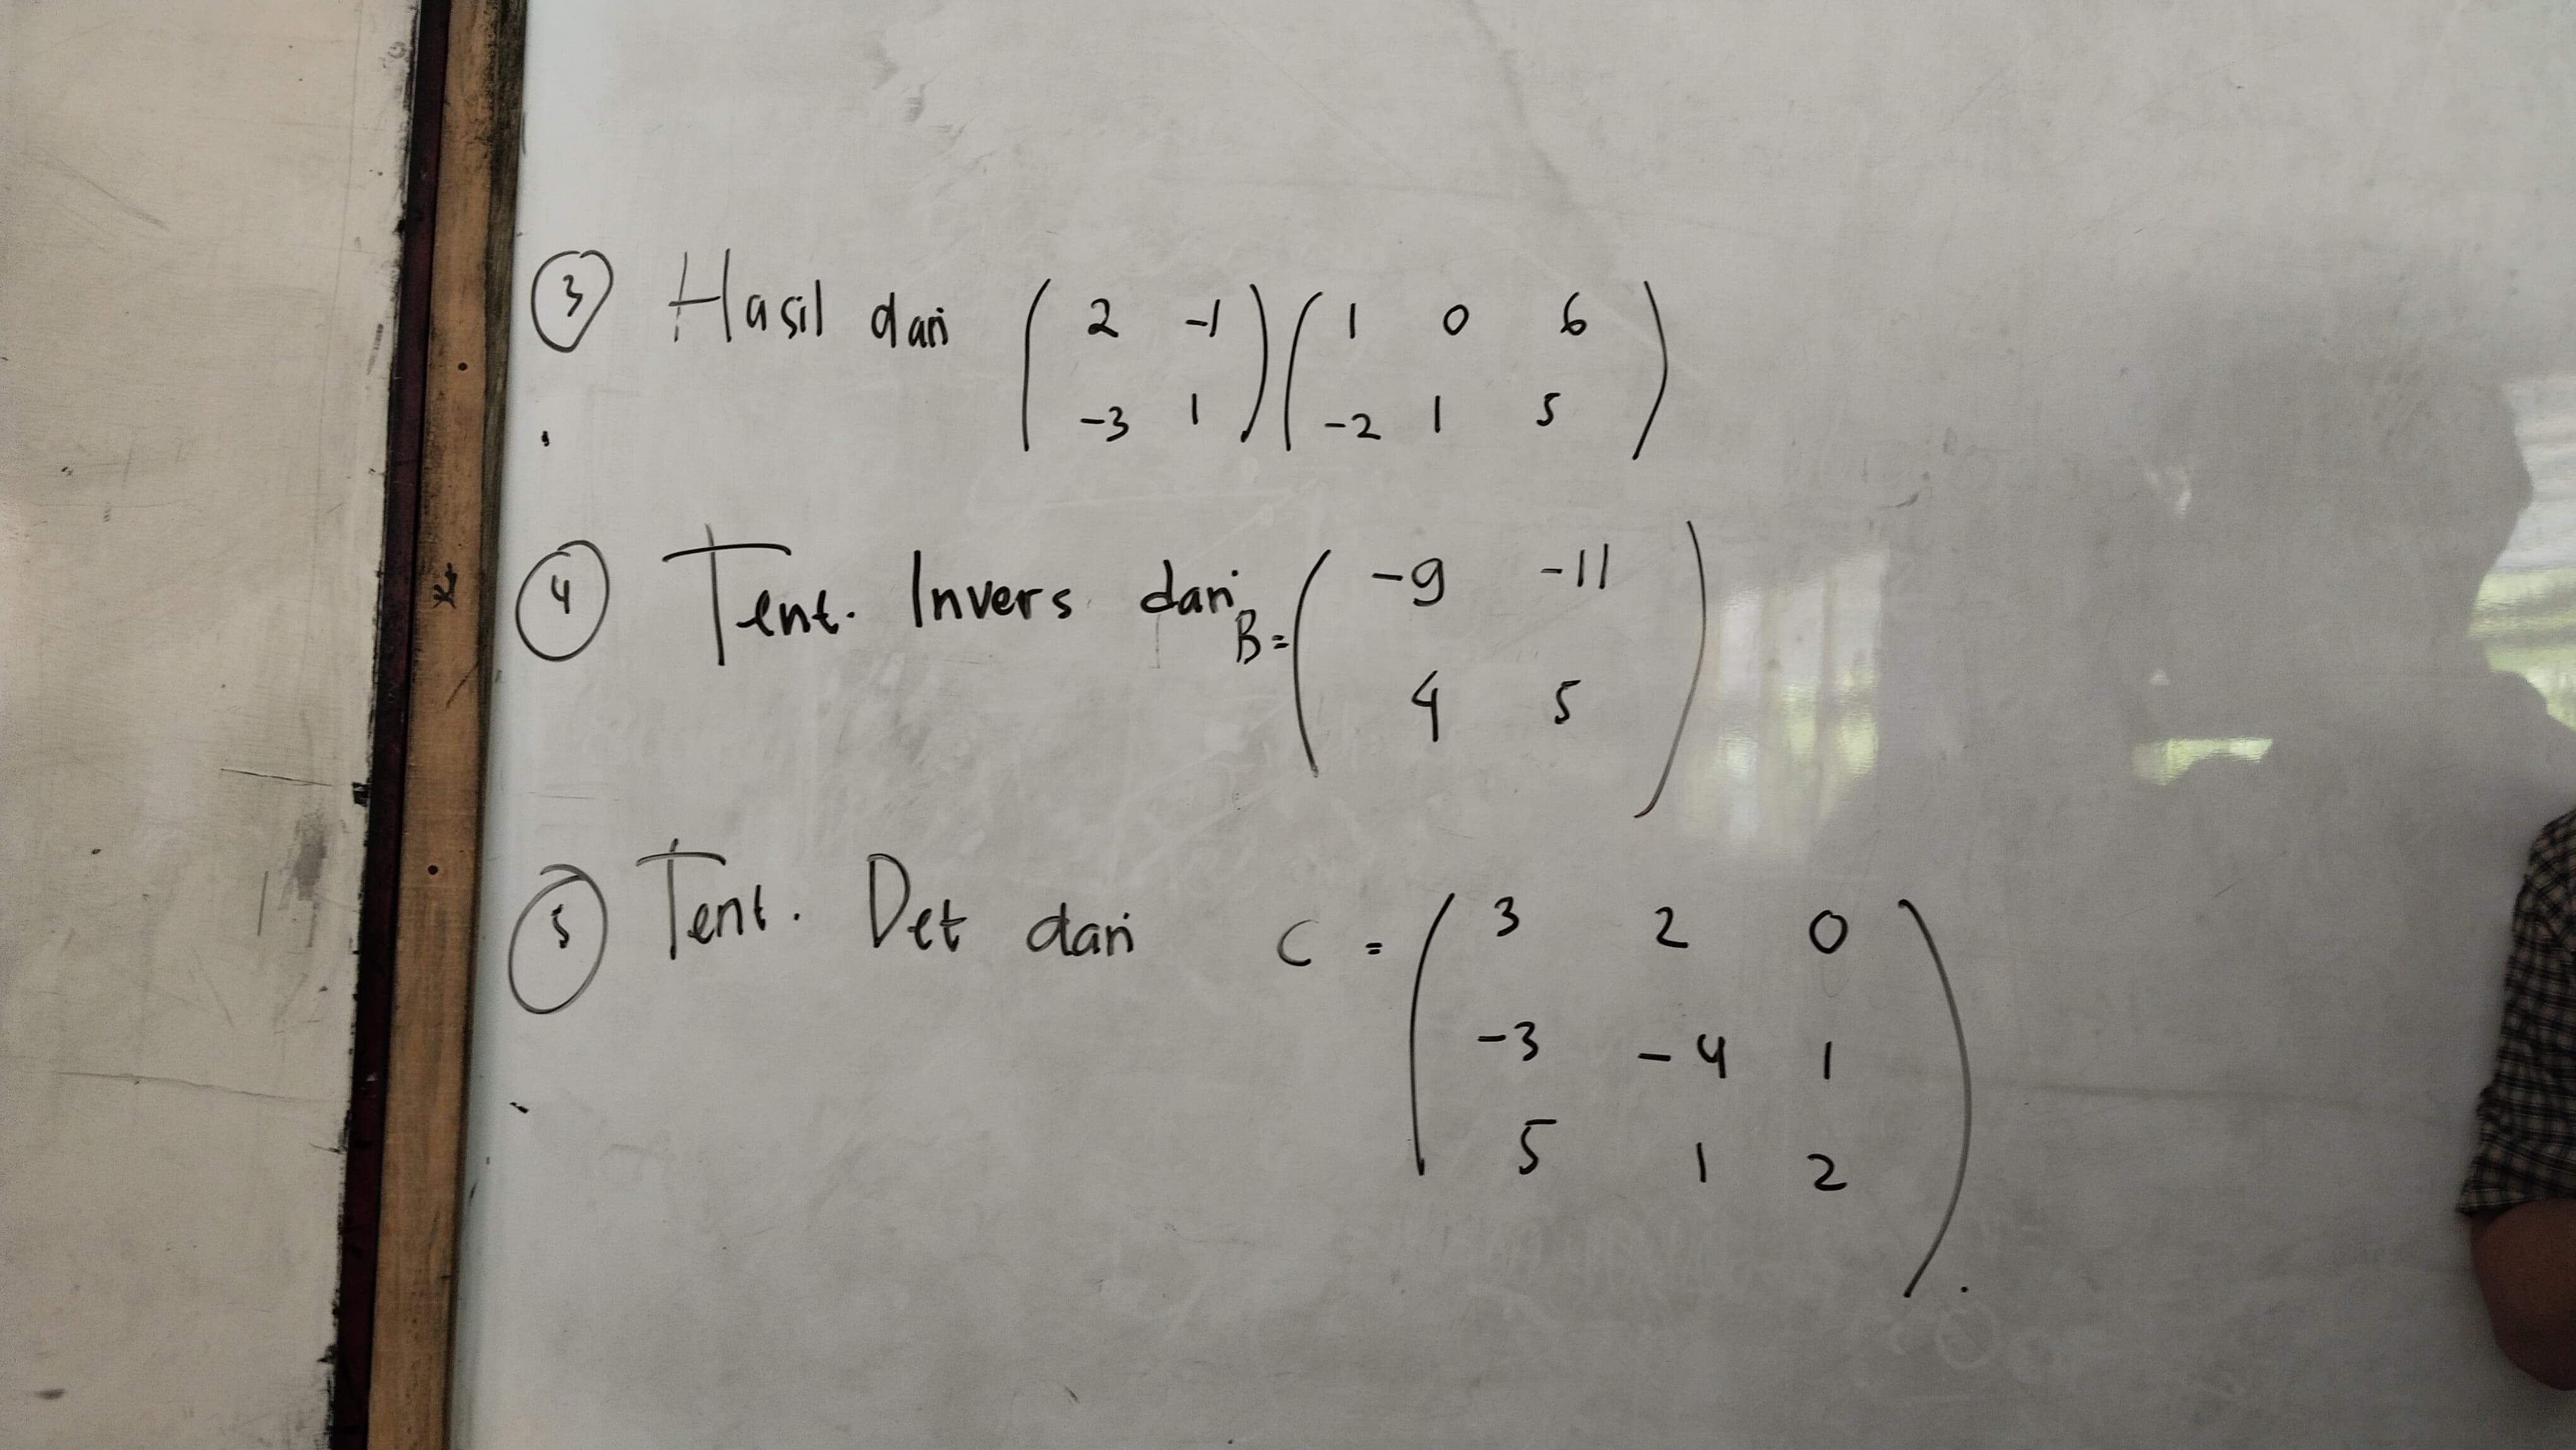 ③ Hasil dari ( 2 -1 ) ( 1 0 6 )
-3 1 -2 1 5
④ Tent. Invers dari B = ( -9 -11 )
4 5
⑤ Tent. Det dari C = ( 3 2 0 )
-3 -4 1
5 1 2 .